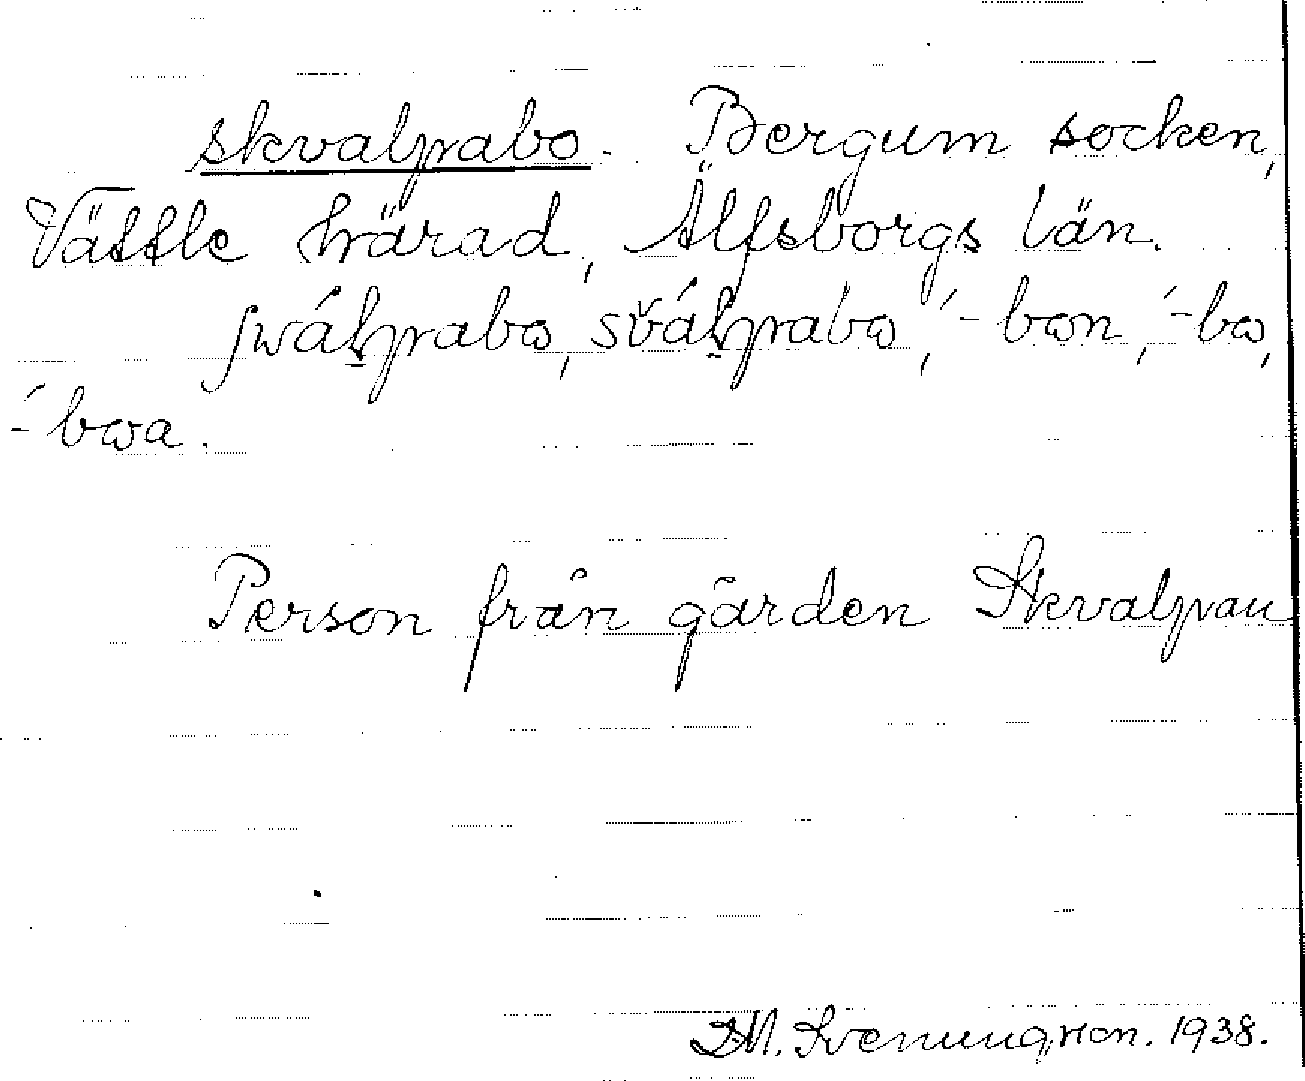 skvalprabo. Bergum socken,
Vättle härad, Älfsborgs län.
ʃwálprabω, sválprabω, ́-bωn, ́-bω,
́-bωa.
Person från gården Skvalprau
M. Svenungsson. 1938.